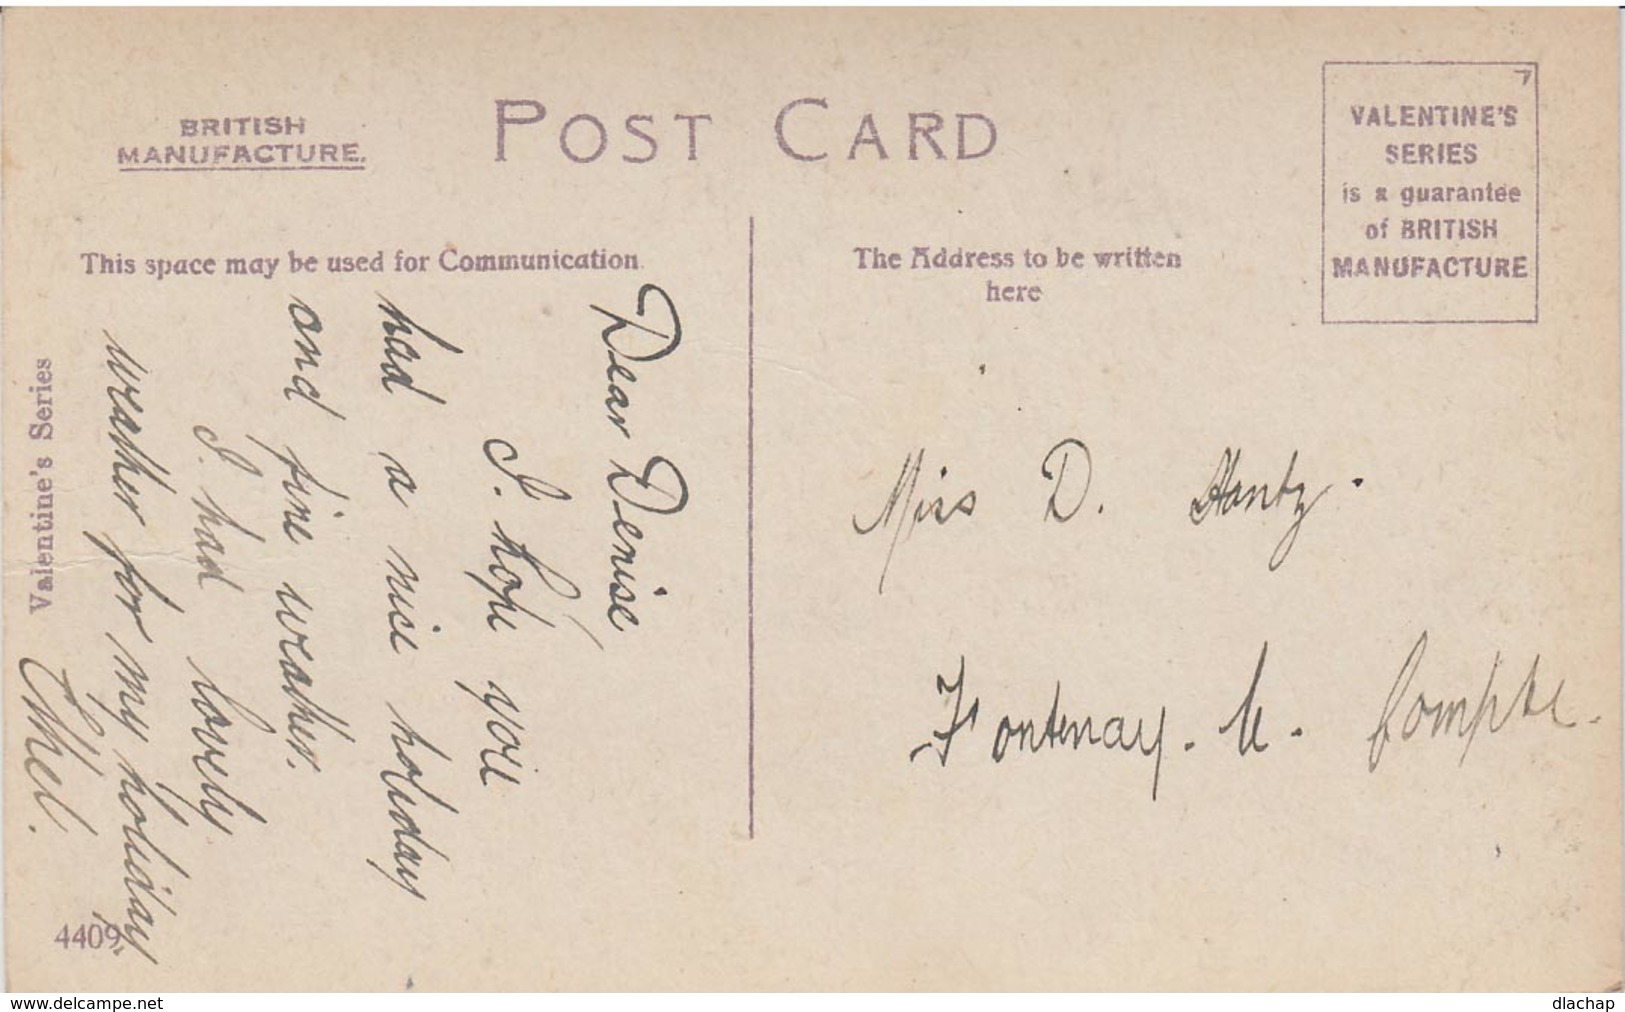 BRITISH
MANUFACTURE.
POST CARD
VALENTINE'S
SERIES
is a guarantee
of BRITISH
MANUFACTURE
This space may be used for Communication.
The Address to be written
here
Dear Denise,
I. hope you
had a nice holiday
and fine weather.
I. had lovely
weather for my holiday.
Ethel.
Miss D. Hantz.
Fontenay. le. Compte.
Valentine's Series
4409.
www.delcampe.net
dlachap